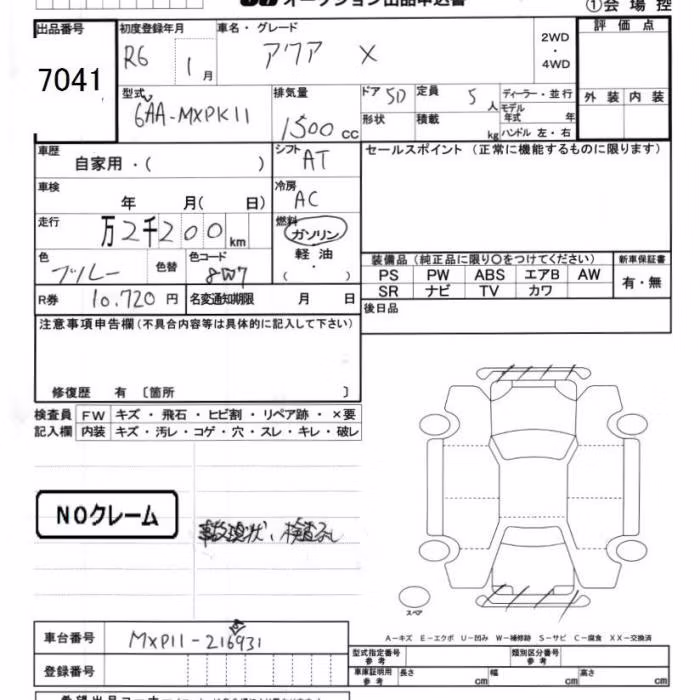 オークション出品申込書
①会場控
出品番号 7041
初度登録年月 R6 1月
車名・グレード アクア X
2WD・4WD
評価点
型式 6AA-MXPK11
排気量 1500cc
ドア 5D 定員 5人
形状 積載 kg
ディーラー・並行
モデル年式 年
ハンドル 左・右
外装 内装
車歴 自家用・( )
シフト AT
セールスポイント(正常に機能するものに限ります)
車検 年 月( 日)
冷房 AC
走行 万2千200km
燃料 ガソリン
軽油
( ・ )
色 ブルー 色替 色コード 8W7
装備品(純正品に限り〇をつけてください) 新車保証書
PS PW ABS エアB AW 有・無
SR ナビ TV カワ
R券 10.720円 名変通知期限 月 日
後日品
注意事項申告欄(不具合内容等は具体的に記入して下さい)
修復歴 有 〔箇所 〕
検査員 FW キズ・飛石・ヒビ割・リペア跡・×要
記入欄 内装 キズ・汚レ・コゲ・穴・スレ・キレ・破レ
NOクレーム
事故現状、検査なし
スペア
A-キズ E-エクボ U-凹み W-補修跡 S-サビ C-腐食 XX-交換済
車台番号 MXP11-216931
型式指定番号 参考 類別区分番号 参考
登録番号
車庫証明用 参考 長さ cm 幅 cm 高さ cm